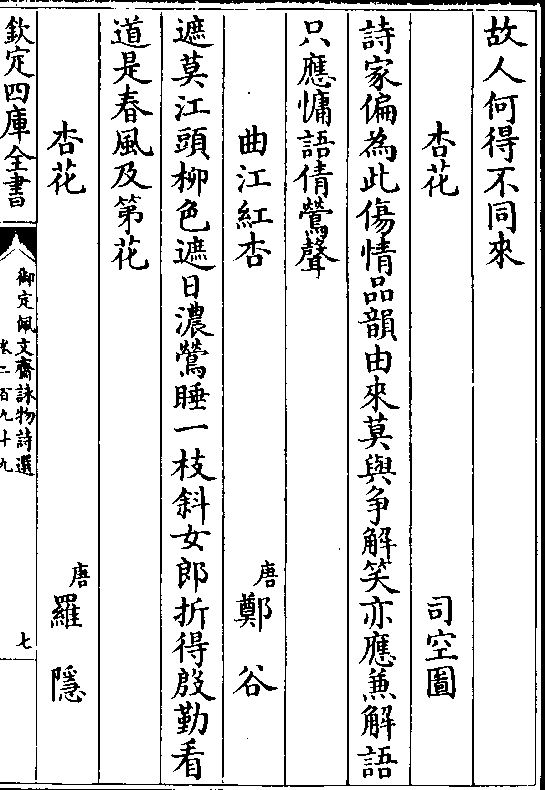 故人何得不同來
杏花 司空圖
詩家偏為此傷情品韻由來莫與爭解笑亦應兼解語
只應慵語倩鶯聲
曲江紅杏 唐 鄭谷
遮莫江頭柳色遮日濃鶯睡一枝斜女郎折得殷勤看
道是春風及第花
杏花 唐 羅隱
欽定四庫全書
御定佩文齋詠物詩選
卷二百九十九
七